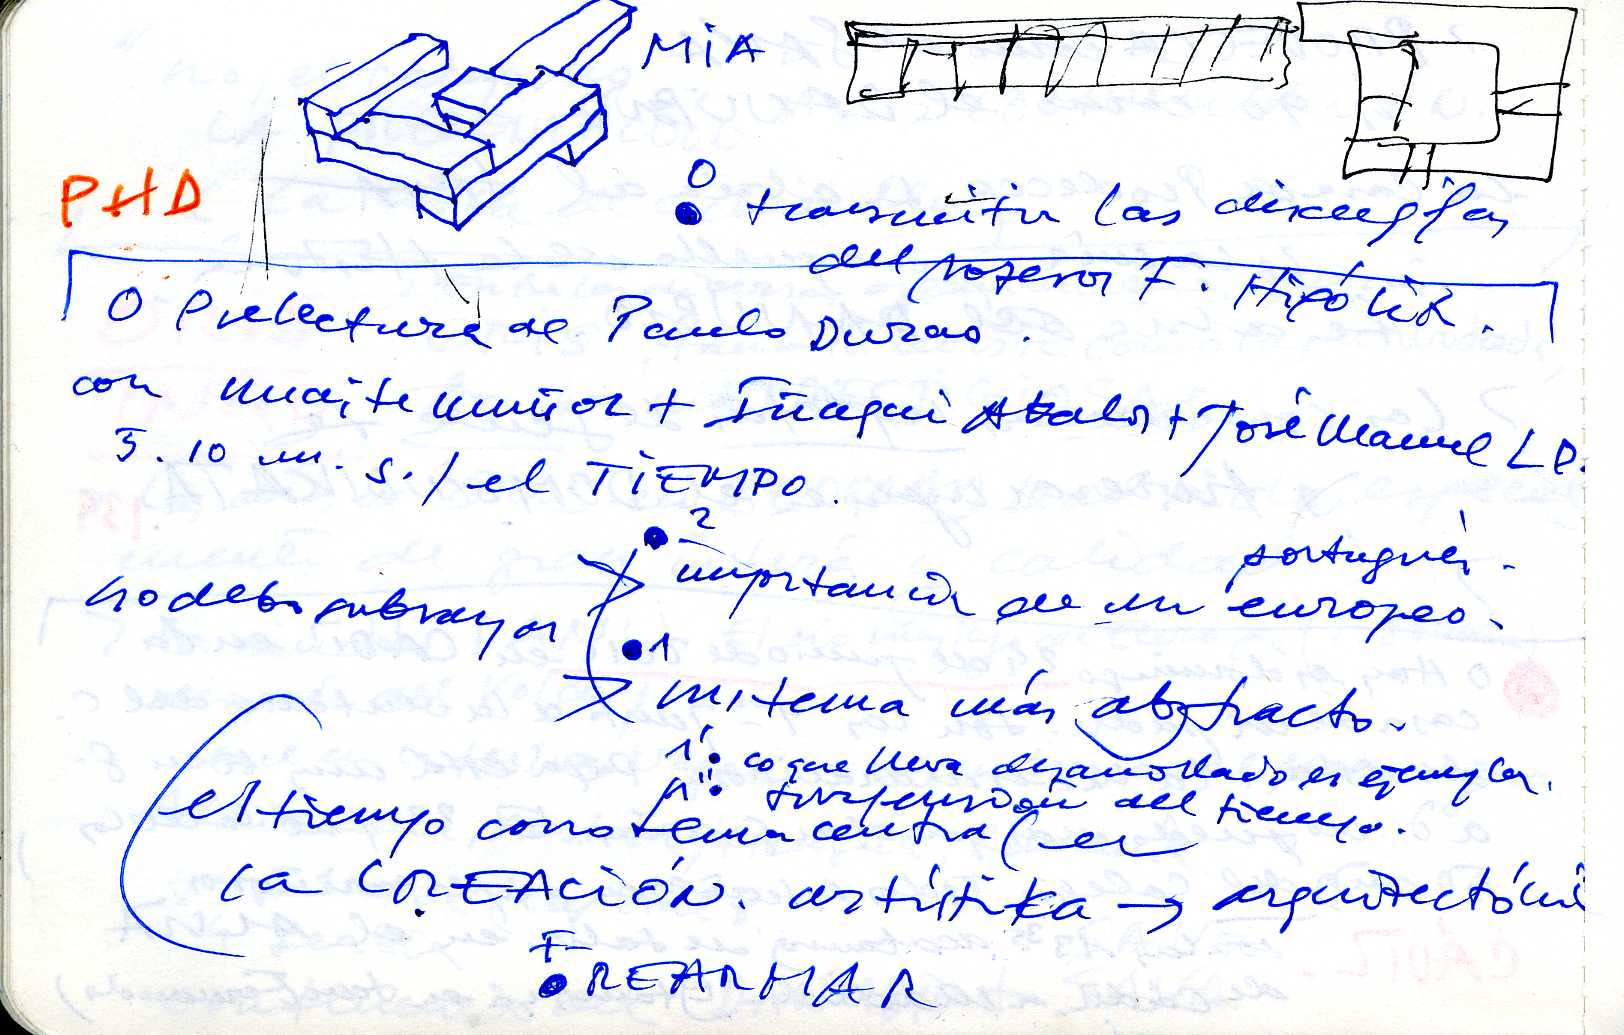 MiA
PHD
0
transmitir las disculpas
del profesor F. Hipólito.
O Prelectura de Paulo Durao.
con maite muñoz + Iñaqui Abalos + José Manuel L P.
5. 10 m. s. / el TIEMPO.
2
portugués.
importancia de un europeo.
no debo subrayar
1
mi tema más abstracto.
1' lo que lleva desarrollado es ejemplar.
1'' suspensión del tiempo.
el tiempo como tema central en
la CREACIÓN. artístika → arquitectóni
F
REARMAR